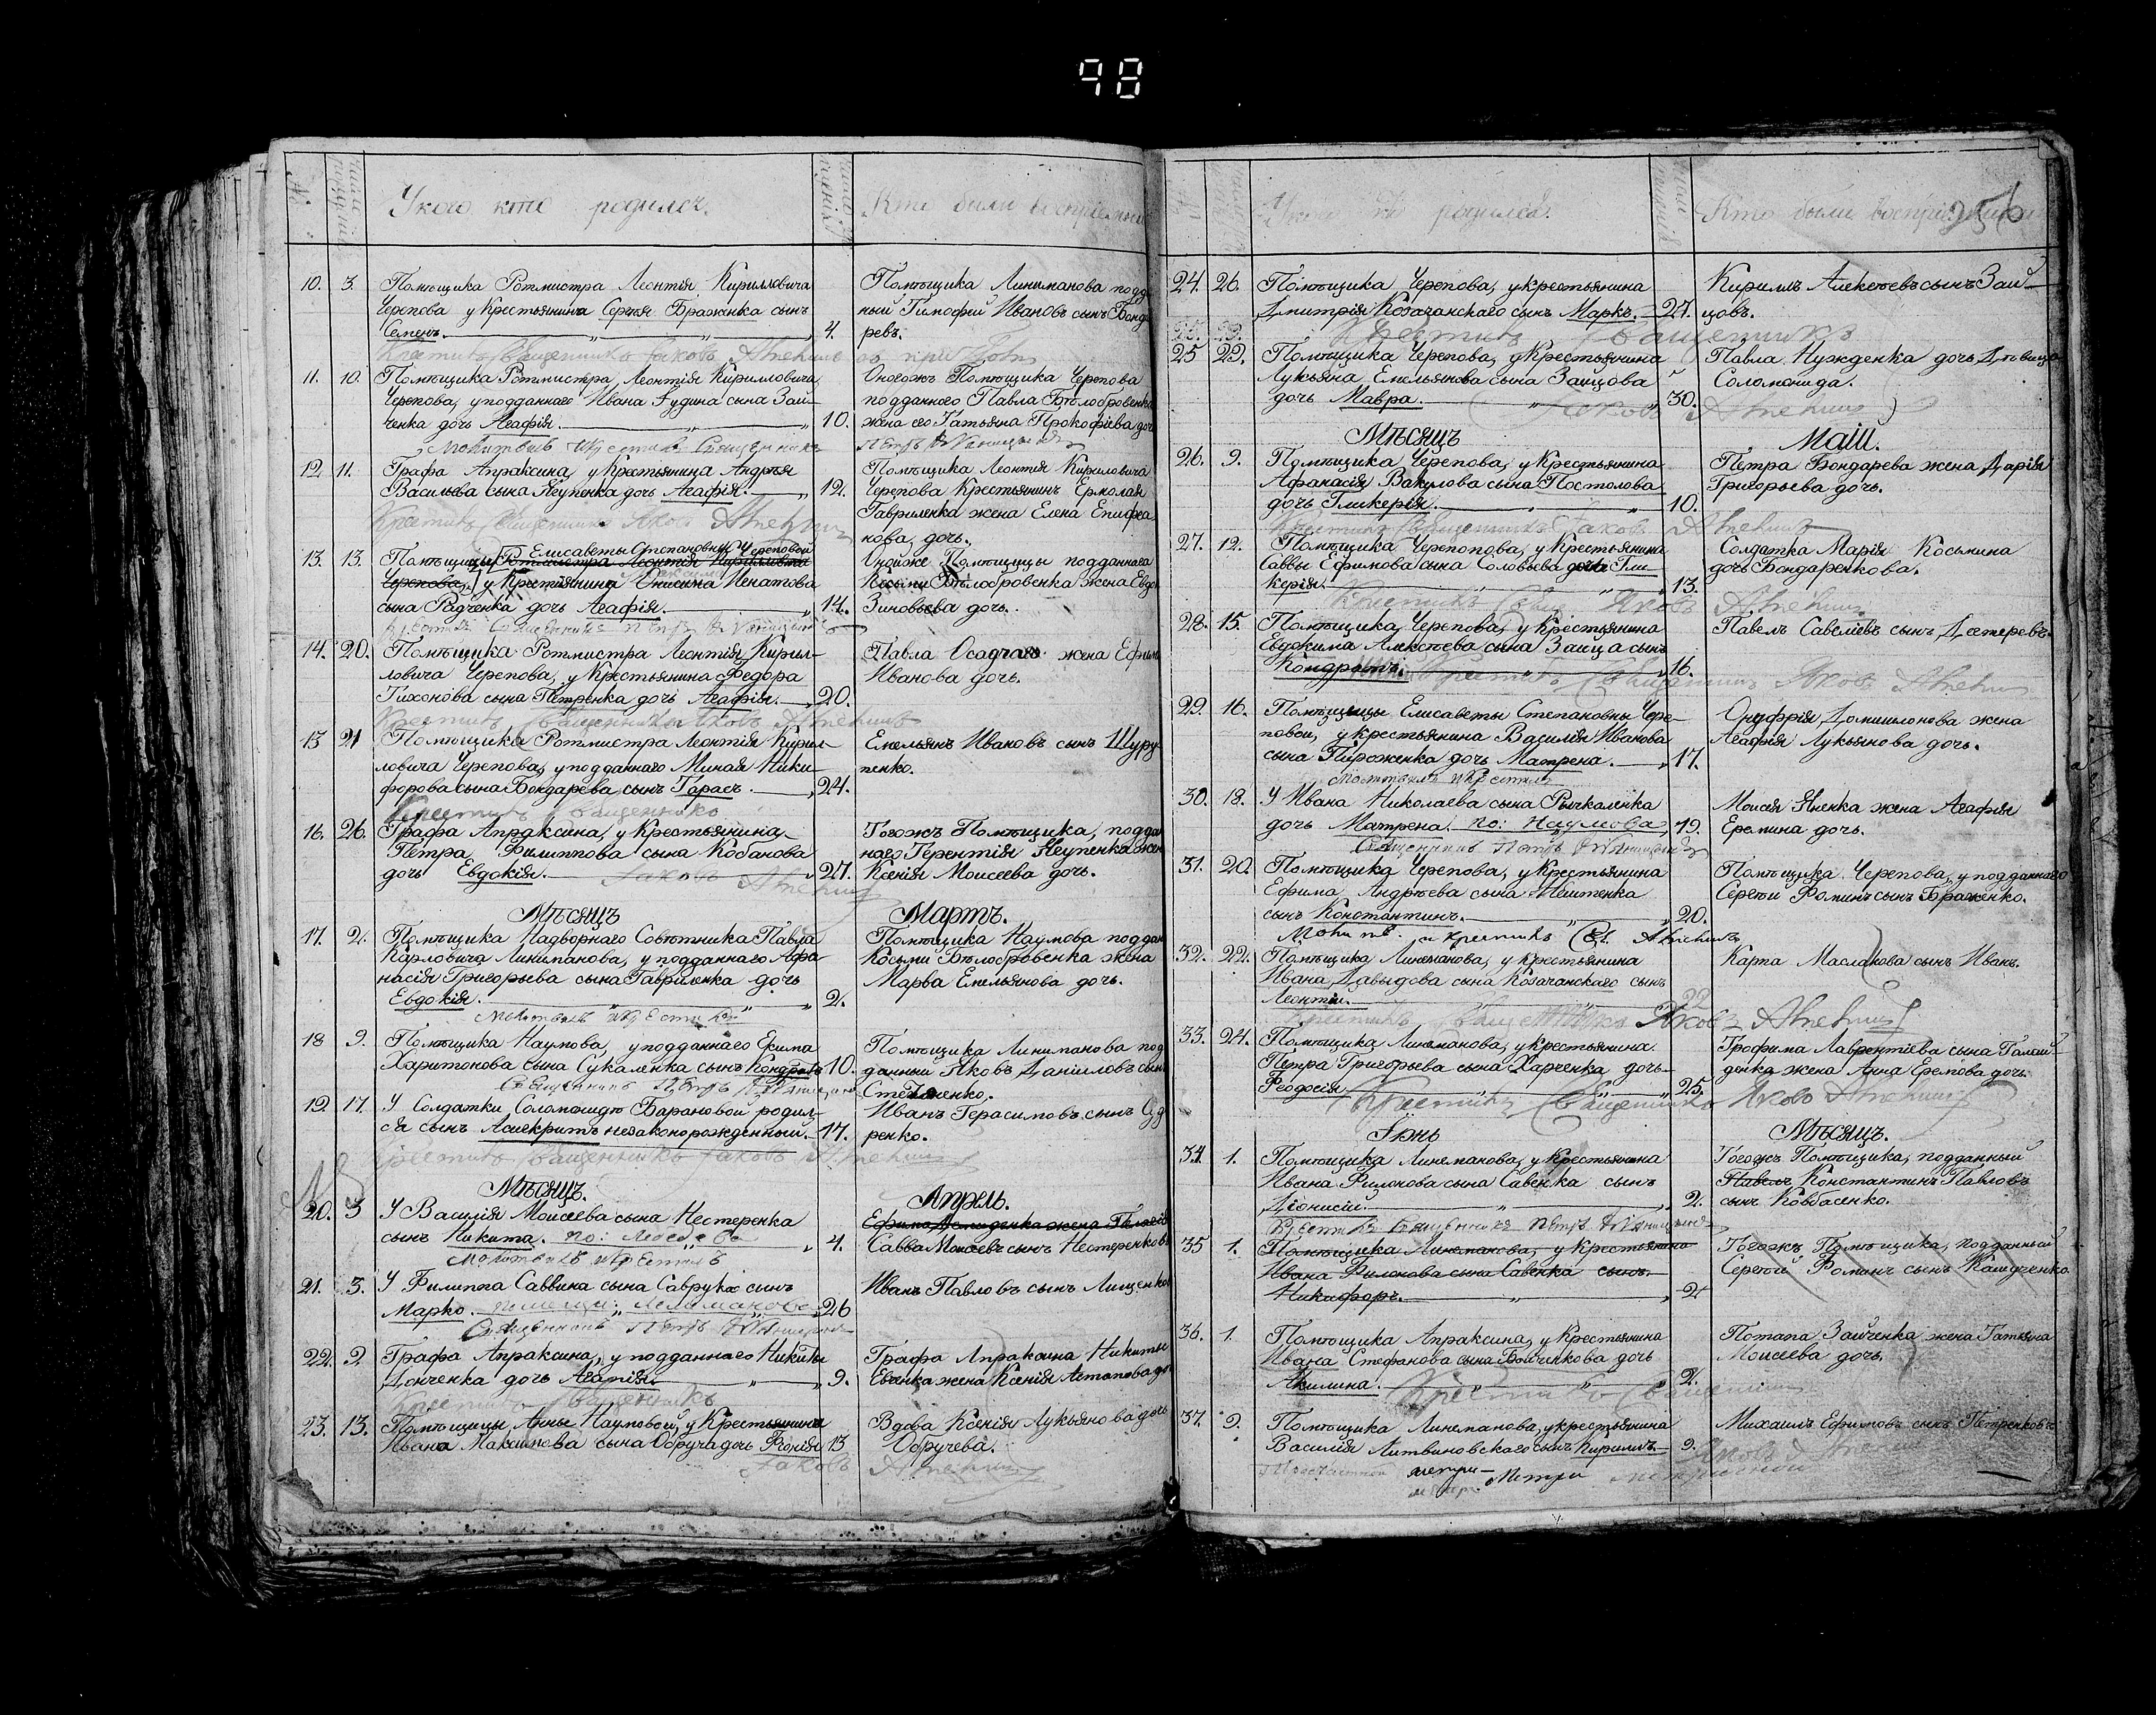 98
У кого кто родился.
Кто были восприемни
10. 3. Помѣщика Ротмистра Леонтія Кирилловича
Черепова у Крестьянина Сергѣя Браженка сынъ
Семенъ. 4.
Помѣщика Линиманова подда
ный Тимофей Ивановъ сынъ Бонда
ревъ.
Крестилъ Священникъ Іаковъ
11. 10. Помѣщика Ротмистра Леонтія Кирилловича
Черепова, у подданнаго Ивана Гудина сына Зай-
ченка дочь Агафія. 10.
Оногожъ Помѣщика Черепова
подданнаго Павла Бѣлобровенка
жена его Татьяна Прокофіева доч
Молитвилъ и крестилъ Священникъ Петръ
12. 11. Графа Апраксина, у Крестьянина Андрѣя
Васильева сына Ягупенка дочь Агафія. 12.
Помѣщика Леонтія Кириловича
Черепова Крестьянинъ Ермолая
Гавриленка жена Елена Епифа
нова, дочь.
Крестилъ Священникъ Яковъ
13. 13. Помѣщицы Елисаветы Степановны Череповой
Ротмистра Леонтія Кириловича
Черепова, у Крестьянина Онисима Игнатова
сына Радченка дочь Агафія. 14.
Оной же Помѣщицы подданнаго
Косьмы Бѣлобровенка жена Евдо
Зиновьева дочь.
Крестилъ Священникъ Петръ
14. 20. Помѣщика Ротмистра Леонтія Кирил-
ловича Черепова, у Крестьянина Федора
Тихонова сына Петренка дочь Агафія. 20.
Павла Осадчаго жена Ефим
Иванова дочь.
Крестилъ Священникъ Яковъ
15 21 Помѣщика Ротмистра Леонтія Кирил-
ловича Черепова, у подданнаго Миная Ники-
форова сына Бондарева, сынъ Тарасъ. 24.
Емельянъ Ивановъ сынъ Шуру
пенко.
Крестилъ Священникъ
16. 26. Графа Апраксина, у Крестьянина
Петра Филиппова сына Кобанова
дочь Евдокія. 27.
Тогожъ Помѣщика, поддан
наго Терентія Ягупенка жен
Ксенія Моисеева дочь.
Іаковъ
Мѣсяцъ Мартъ.
17. 2. Помѣщика Надворнаго Совѣтника Павла
Карловича Линиманова, у подданнаго Афа-
насія Григорьева сына Гавриленка дочь
Евдокія. 2.
Помѣщика Наумова поддан
Косьмы Бѣлобровенка жена
Марѳа Емельянова дочь.
Молитвилъ и крестилъ
18 9. Помѣщика Наумова, у подданнаго Екима
Харитонова сына Сукаленка сынъ Кондратъ 10.
Помѣщика Линиманова под
данный Яковъ Даніиловъ сынъ
Степаненко.
Священникъ Петръ
19. 17. У Солдатки Соломониды Барановой родил-
ся сынъ Асигкритъ незаконорожденный. 17.
Иванъ Герасимовъ сынъ
ренко.
Крестилъ Священникъ Іаковъ
Мѣсяцъ. Апрель.
20. 3 У Василія Моисеева сына Нестеренка
сынъ Никита. 4.
Савва Моисеевъ сынъ Нестеренковъ
Молитвилъ и крестилъ
21. 3. У Филиппа Саввина сына Саврука сынъ
Марко. 26
Иванъ Павловъ сынъ Лищенко
Священникъ Петръ
22. 9. Графа Апраксина, у подданнаго Никиты
Донченка дочь Агафія. 9.
Графа Апраксина Никиты
жена Ксенія
Крестилъ Священникъ
23. 13. Помѣщицы Анны Наумовой, у Крестьянина
Ивана Максимова сына Обруча дочь Ѳеонія 13
Вдова Ксенія Лукьянова дочь
Обручева.
Іаковъ
256
У кого кто родился.
Кто были восприемники
24. 26. Помѣщика Черепова, у крестьянина
Дмитрія Козачанскаго сынъ Маркъ. 27.
Кирилъ Алексѣевъ сынъ Зай-
цовъ.
Крестилъ Священникъ
25 29. Помѣщика Черепова, у Крестьянина
Лукьяна Емельянова сына Заицова
дочь Мавра. 30.
Павла Нужденка дочь Дѣвица
Соломонида.
Іаковъ
Мѣсяцъ Маій.
26. 9. Помѣщика Черепова, у Крестьянина
Афанасія Вакулова сына Постолова
дочь Гликерія. 10.
Петра Бондарева жена Дарія
Григорьева дочь.
Крестилъ Священникъ Іаковъ
27. 12. Помѣщика Черепова, у Крестьянина
Саввы Ефимова сына Соловьева дочь Гли-
керія. 13.
Солдатка Марія Косьмина
дочь Бондаренкова.
Крестилъ Свящ. Яковъ
28. 15. Помѣщика Черепова, у Крестьянина
Евдокима Алексѣева сына Заица сынъ
Кондратъ. 16.
Павелъ Савеліевъ сынъ Дегтеревъ.
Крестилъ Священникъ Яковъ
29. 16. Помѣщицы Елисаветы Степановны Чере-
повой, у крестьянина Василія Иванова
сына Пироженка дочь Матрена. 17.
Онуфрія Домишлонова жена
Агафія Лукьянова дочь.
Молитвилъ и крестилъ
30. 18. У Ивана Николаева сына Рычкаленка
дочь Матрена. по: Наумова 19.
Моисея Яленка жена Агафія
Еремина дочь.
Священникъ Петръ
31. 20. Помѣщика Черепова, у Крестьянина
Ефима Андрѣева сына Ившенка
сынъ Константинъ. 20.
Помѣщика Черепова, у подданнаго
Сергѣй Фоминъ сынъ Браженко.
Молитв. и крестилъ
32. 22. Помѣщика Линеманова, у Крестьянина
Ивана Давыдова сына Козачанскаго сынъ
Леонтій. 22
Карпа Маслакова сынъ Иванъ.
Крестилъ Священникъ Яковъ
33. 24. Помѣщика Линеманова, у крестьянина
Петра Григорьева сына Харченка дочь
Ѳеодосія. 25.
Трофима Лаврентіева сына Галай-
денка жена Анна Еремова дочь.
Крестилъ Священникъ Яковъ
Іюнь Мѣсяцъ.
34 1. Помѣщика Линеманова, у Крестьянина
Ивана Филонова сына Савенка сынъ
Діонисій. 2.
Тогожъ Помѣщика, подданный
Павелъ Константинъ Павловъ
сынъ Ковбасенко.
Крестилъ Священникъ Петръ
35 1. Помѣщика Линеманова, у Крестьянина
Ивана Филонова сына Савенка сынъ
Никифоръ. 2
Тогожъ Помѣщика, подданный
Сергѣй Фоминъ сынъ
36. 1. Помѣщика Апраксина, у Крестьянина
Ивана Стефанова сына Бойченкова дочь
Акилина. 2.
Потапа Зайченка жена Татьяна
Моисеева дочь.
Крестилъ Священникъ
37. 9. Помѣщика Линеманова, у крестьянина
Василія Литвиновскаго сынъ Кирилъ. 9.
Михаилъ Ефимовъ сынъ Петренковъ
Яковъ
метри-
Метри